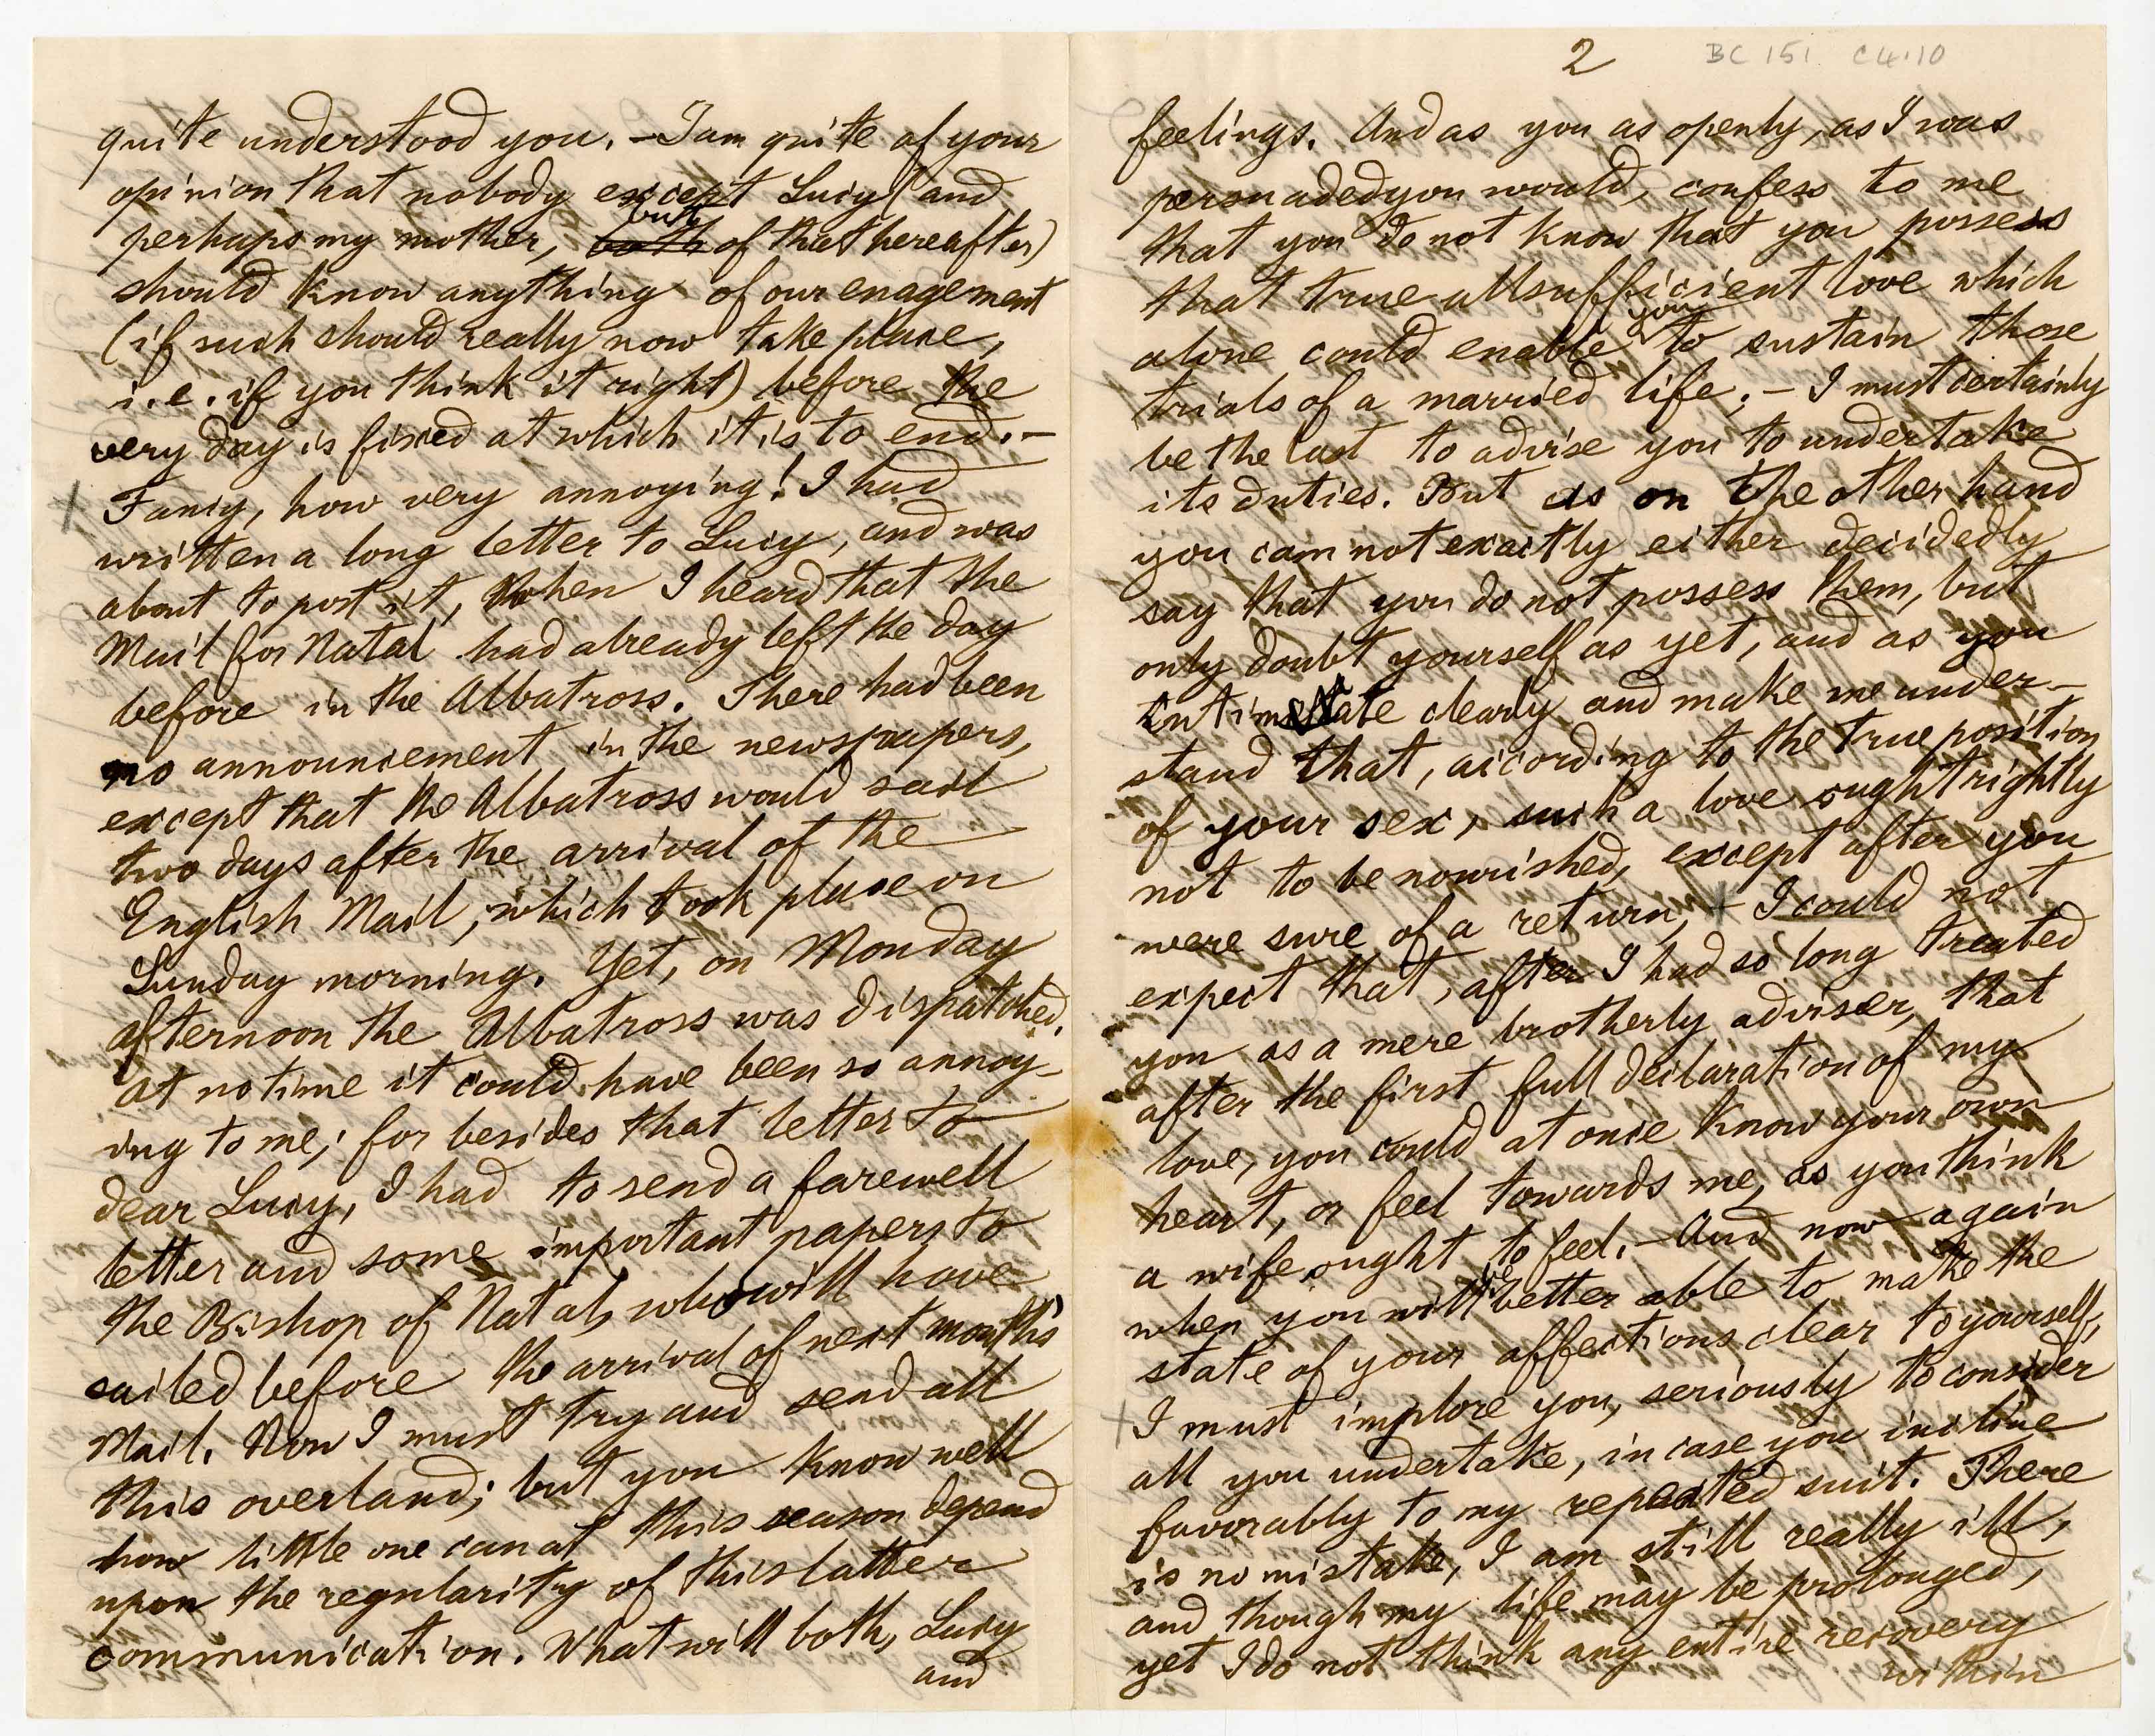 quite understood you. – I am quite of your
opinion that nobody except Lucy (and
perhaps my mother, both but of that hereafter)
should know anything of our enagement
(if such should really now take place,
i.e. if you think it right) before the
very day is fixed at which it is to end. –
Fancy, how very annoying! I had
written a long letter to Lucy, and was
about to post it, when I heard that the
Mail for Natal had already left the day
before in the Albatross. There had been
no announcement in the newspapers,
except that the Albatross would sail
two days after the arrival of the
English Mail, which took place on
Sunday morning. Yet, on Monday
afternoon the Albatross was dispatched.
At no time it could have been so annoy-
ing to me; for besides that letter to
dear Lucy, I had to send a farewell
letter and some important papers to
the Bishop of Natal, who will have
sailed before the arrival of next month's
Mail. Now I must try and send all
this overland; but you know well
how little one can at this season depend
upon the regularity of this latter
communication. What will both, Lucy
and
2 BC 151 C4.10
feelings. And as you as openly, as I was
persuaded you would, confess to me
that you do not know that you possess
that true allsufficient love which
alone could enable you to sustain those
trials of a married life; – I must certainly
be the last to advise you to undertake
its duties. But as on the other hand
you can not exactly either decidedly
say that you do not possess them, but
only doubt yourself as yet, and as you
intimate clearly and make me under-
stand that, according to the true position
of your sex, such a love ought rightly
not to be nourished, except after you
were sure of a return, – I could not
expect that, after I had so long treated
you as a mere brotherly adviser, that
after the first full declaration of my
love, you could at once know your own
heart, or feel towards me, as you think
a wife ought to feel. – And now again
when you will be better able to make the
state of your affections clear to yourself,
I must implore you, seriously to consider
all you undertake, in case you incline
favorably to my repeated suit. There
is no mistake, I am still really ill,
and though my life may be prolonged,
yet I do not think any entire recovery
within